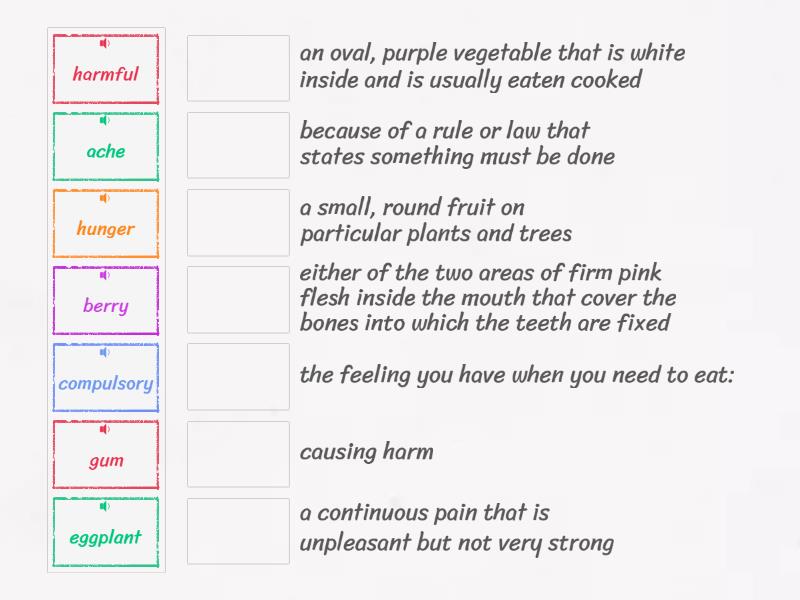 harmful
an oval, purple vegetable that is white
inside and is usually eaten cooked
ache
because of a rule or law that
states something must be done
hunger
a small, round fruit on
particular plants and trees
berry
either of the two areas of firm pink
flesh inside the mouth that cover the
bones into which the teeth are fixed
compulsory
the feeling you have when you need to eat:
gum
causing harm
eggplant
a continuous pain that is
unpleasant but not very strong